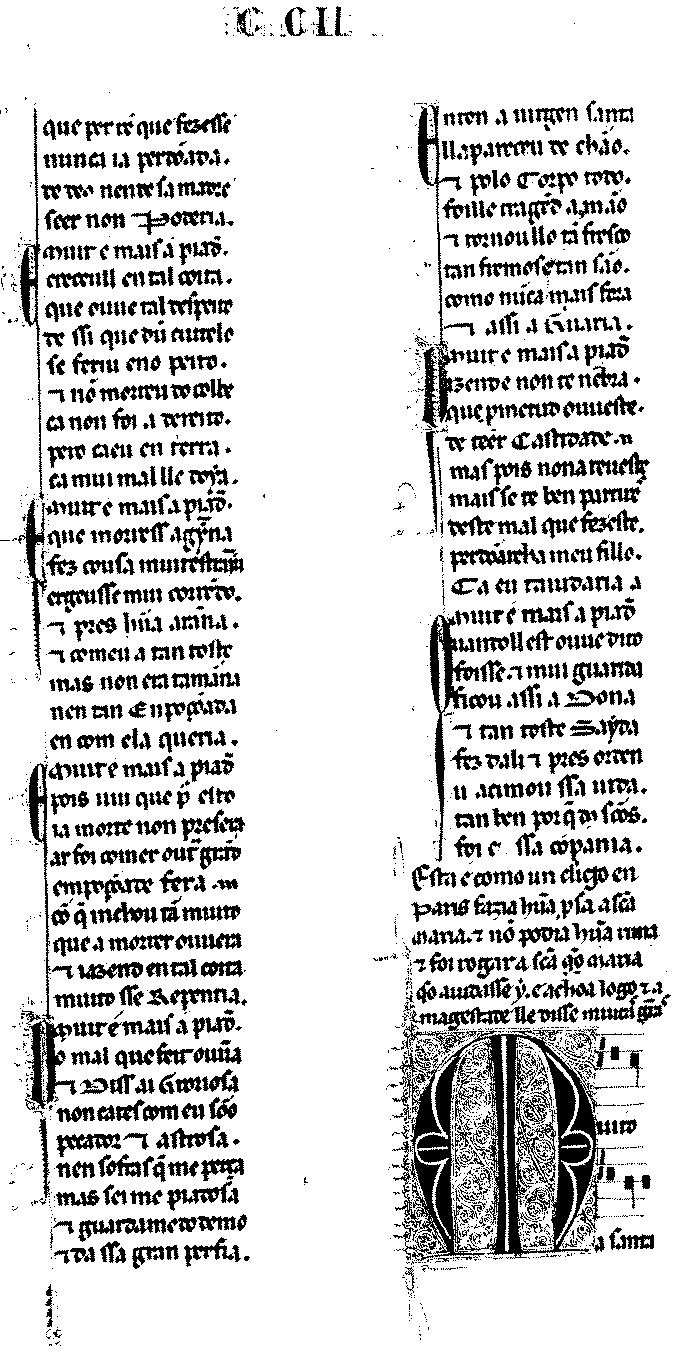 C CII
que per ren que fezesse
nunca ia perdõada.
de deo nen de sa madre
seer non Poderia.
Muit e mais a piad̃.
E creceull en tal coita.
que ouue tal despeito
de ssi que dũ cuitelo
se feriu eno peito.
⁊ nõ morreu do colbe
ca non foi a dereito.
pero caeu en terra.
ca mui mal lle doya.
Muit e mais a piad̃.
E que morress agỹna
fez cousa mui estrãỹa
ergeusse mui correndo.
⁊ pres hũa aranna.
⁊ comeu a tan toste
mas non era tamanna
nen tan Enpoçõada
en com ela queria.
Muit e mais a piad̃
E pois uiu que p̃ esto
ia morte non presera
ar foi comer out̃ grãd
empoçõada fera
cõ q̃ inchou tã muito
que a morrer ouuera
⁊ iazend en tal coita
muito sse Repentia.
Muit e mais a piad̃.
Do mal que feit ouuera
⁊ Diss ai Groriosa
non cates com eu sõo
pecador ⁊ astrosa.
nen sofras q̃ me perça
mas sei me piadosa
⁊ guardame do demo
⁊ da ssa gran perfia.
Enton a uirgen santa
ll apareceu de chão.
⁊ polo Corpo todo.
foi lle tragend a mão
⁊ tornou llo tã fresco
tan fremos e tan são.
como nũca mais fora
⁊ assi a Guaria.
Muit e mais a piad̃
Dizend e non te nẽbra.
que pmetud ouueste.
de teer Castidade.
mas pois non a teueste
mais se te ben partires
deste mal que fezeste.
perdõarcha meu fillo.
Ca eu t aiudaria a
Muit e mais a piad̃
Quando ll est ouue dito
foisse. ⁊ mui guarida
ficou assi a Dona
⁊ tan toste Saỹda
fez dali ⁊ pres orden
u acimou ssa uida.
tan ben por q̃ ds̃ scõs.
foi e ssa cõpania.
Esta e como un clerigo en
Paris fazia hũa psa a scã
maria. ⁊ nõ podia hũa rima
⁊ foi rogar a scã q̃o maria
q̃o aiudasse ỹ. e achoa logo ⁊ a
magestade lle disse muitas grãs
Muito
a santa